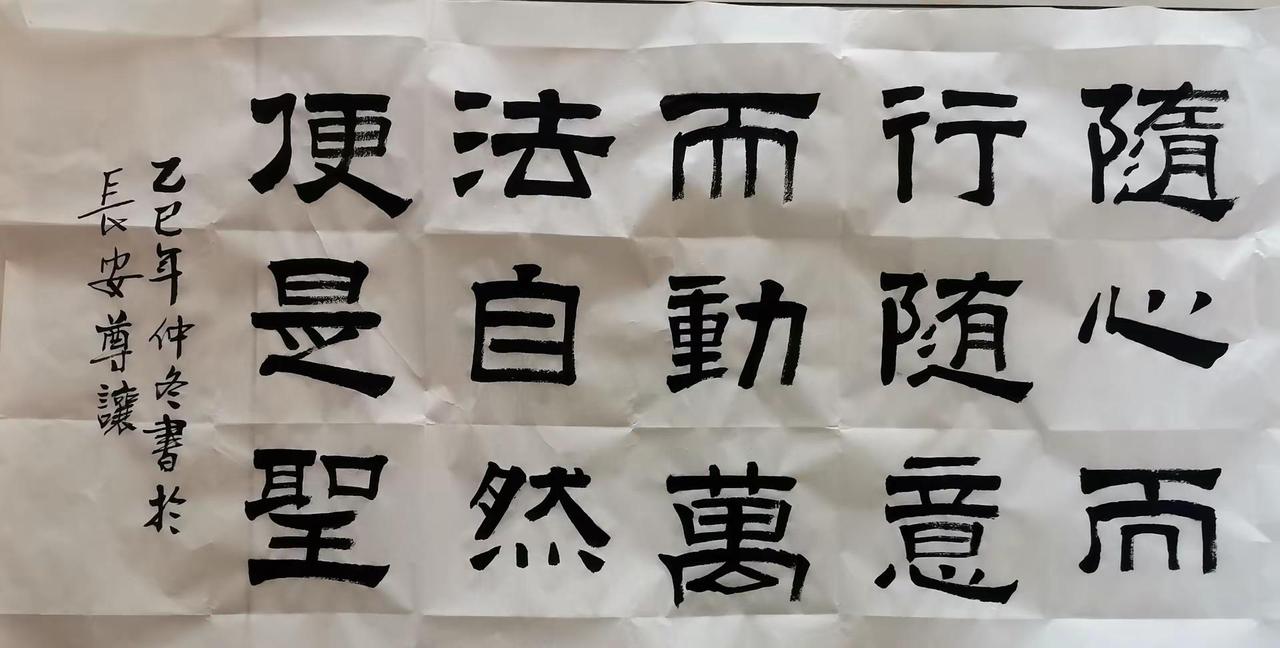 隨心而
行隨意
而動萬
法自然
便是聖
乙巳年仲冬書於
長安尊讓